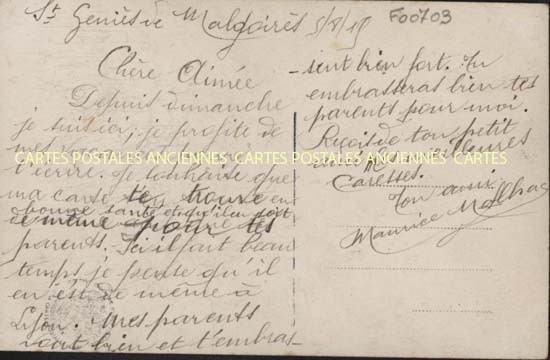 St Geniès de Malgoirès 5/8/19
F00703
Chère Aimée
Depuis dimanche
je suis ici, je profite de
mes
t'écrire. Je souhaite que
ma carte te trouve en
bonne santé et qu'il en soit
de même pour tes
parents. Ici il fait beau
temps je pense qu'il
en est de même à
Lyon. Mes parents
vont bien et t'embras-
-sent bien fort. Tu
embrasseras bien tes
parents pour moi.
Reçois de ton petit
ami meilleures
Caresses.
Ton ami
Maurice
CARTES POSTALES ANCIENNES CARTES POSTALES ANCIENNES CARTES POSTALES ANCIENNES